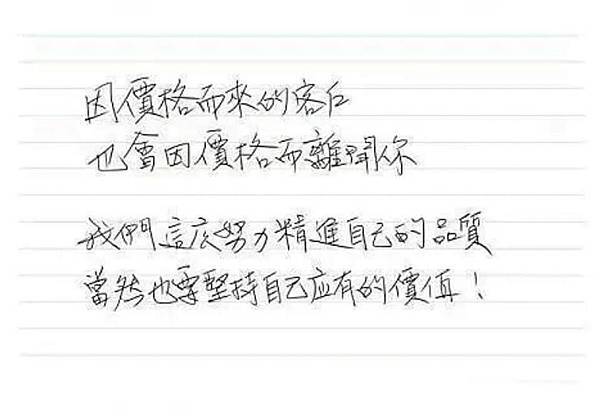 因價格而來的客戶
也會因價格而離開你
我們這庅努力精進自己的品質
當然也要堅持自己应有的價值！